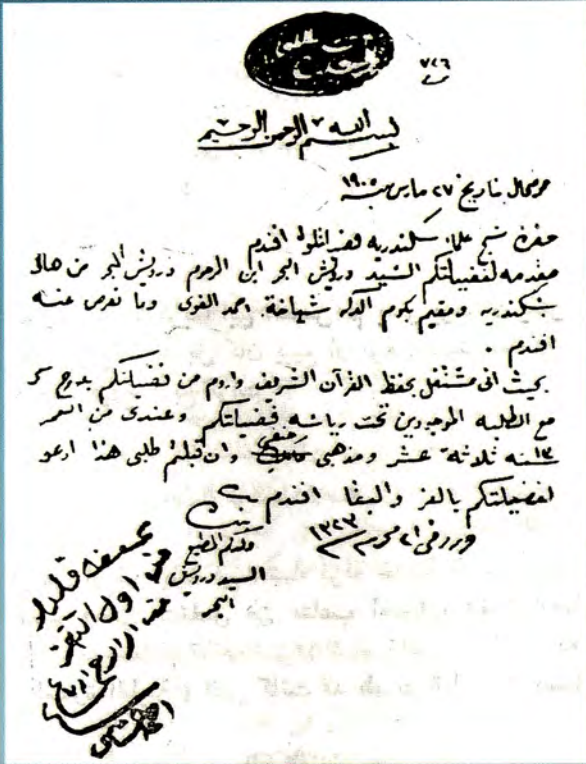 ٧٤٦
بسم الله الرحمن الرحيم
عرضحال بتاريخ ٢٧ مارس سنة ١٩٠٥
حضرة شيخ علماء سكندريه فضيلتلو افندم
مقدمه لفضيلتكم السيد درويش البحر ابن المرحوم درويش البحر من اهالى
سكندريه ومقيم بكوم الدكه شياخة احمد الفوى وما نعرض عنه
افندم .
بحيث انى مشتغل بحفظ القرآن الشريف وأروم من فضيلتكم بدرج
مع الطلبه الموجودين تحت رياسة فضيلتكم وعندى من العمر
١٣ سنه ثلاثة عشر ومذهبى حنفى وان قبلتم طلبى هذا ادعو
لفضيلتكم بالعز والبقا افندم
تحريرا فى ٢١ محرم سنة ١٣٢٣
ولدكم المطيع
السيد درويش
البحر